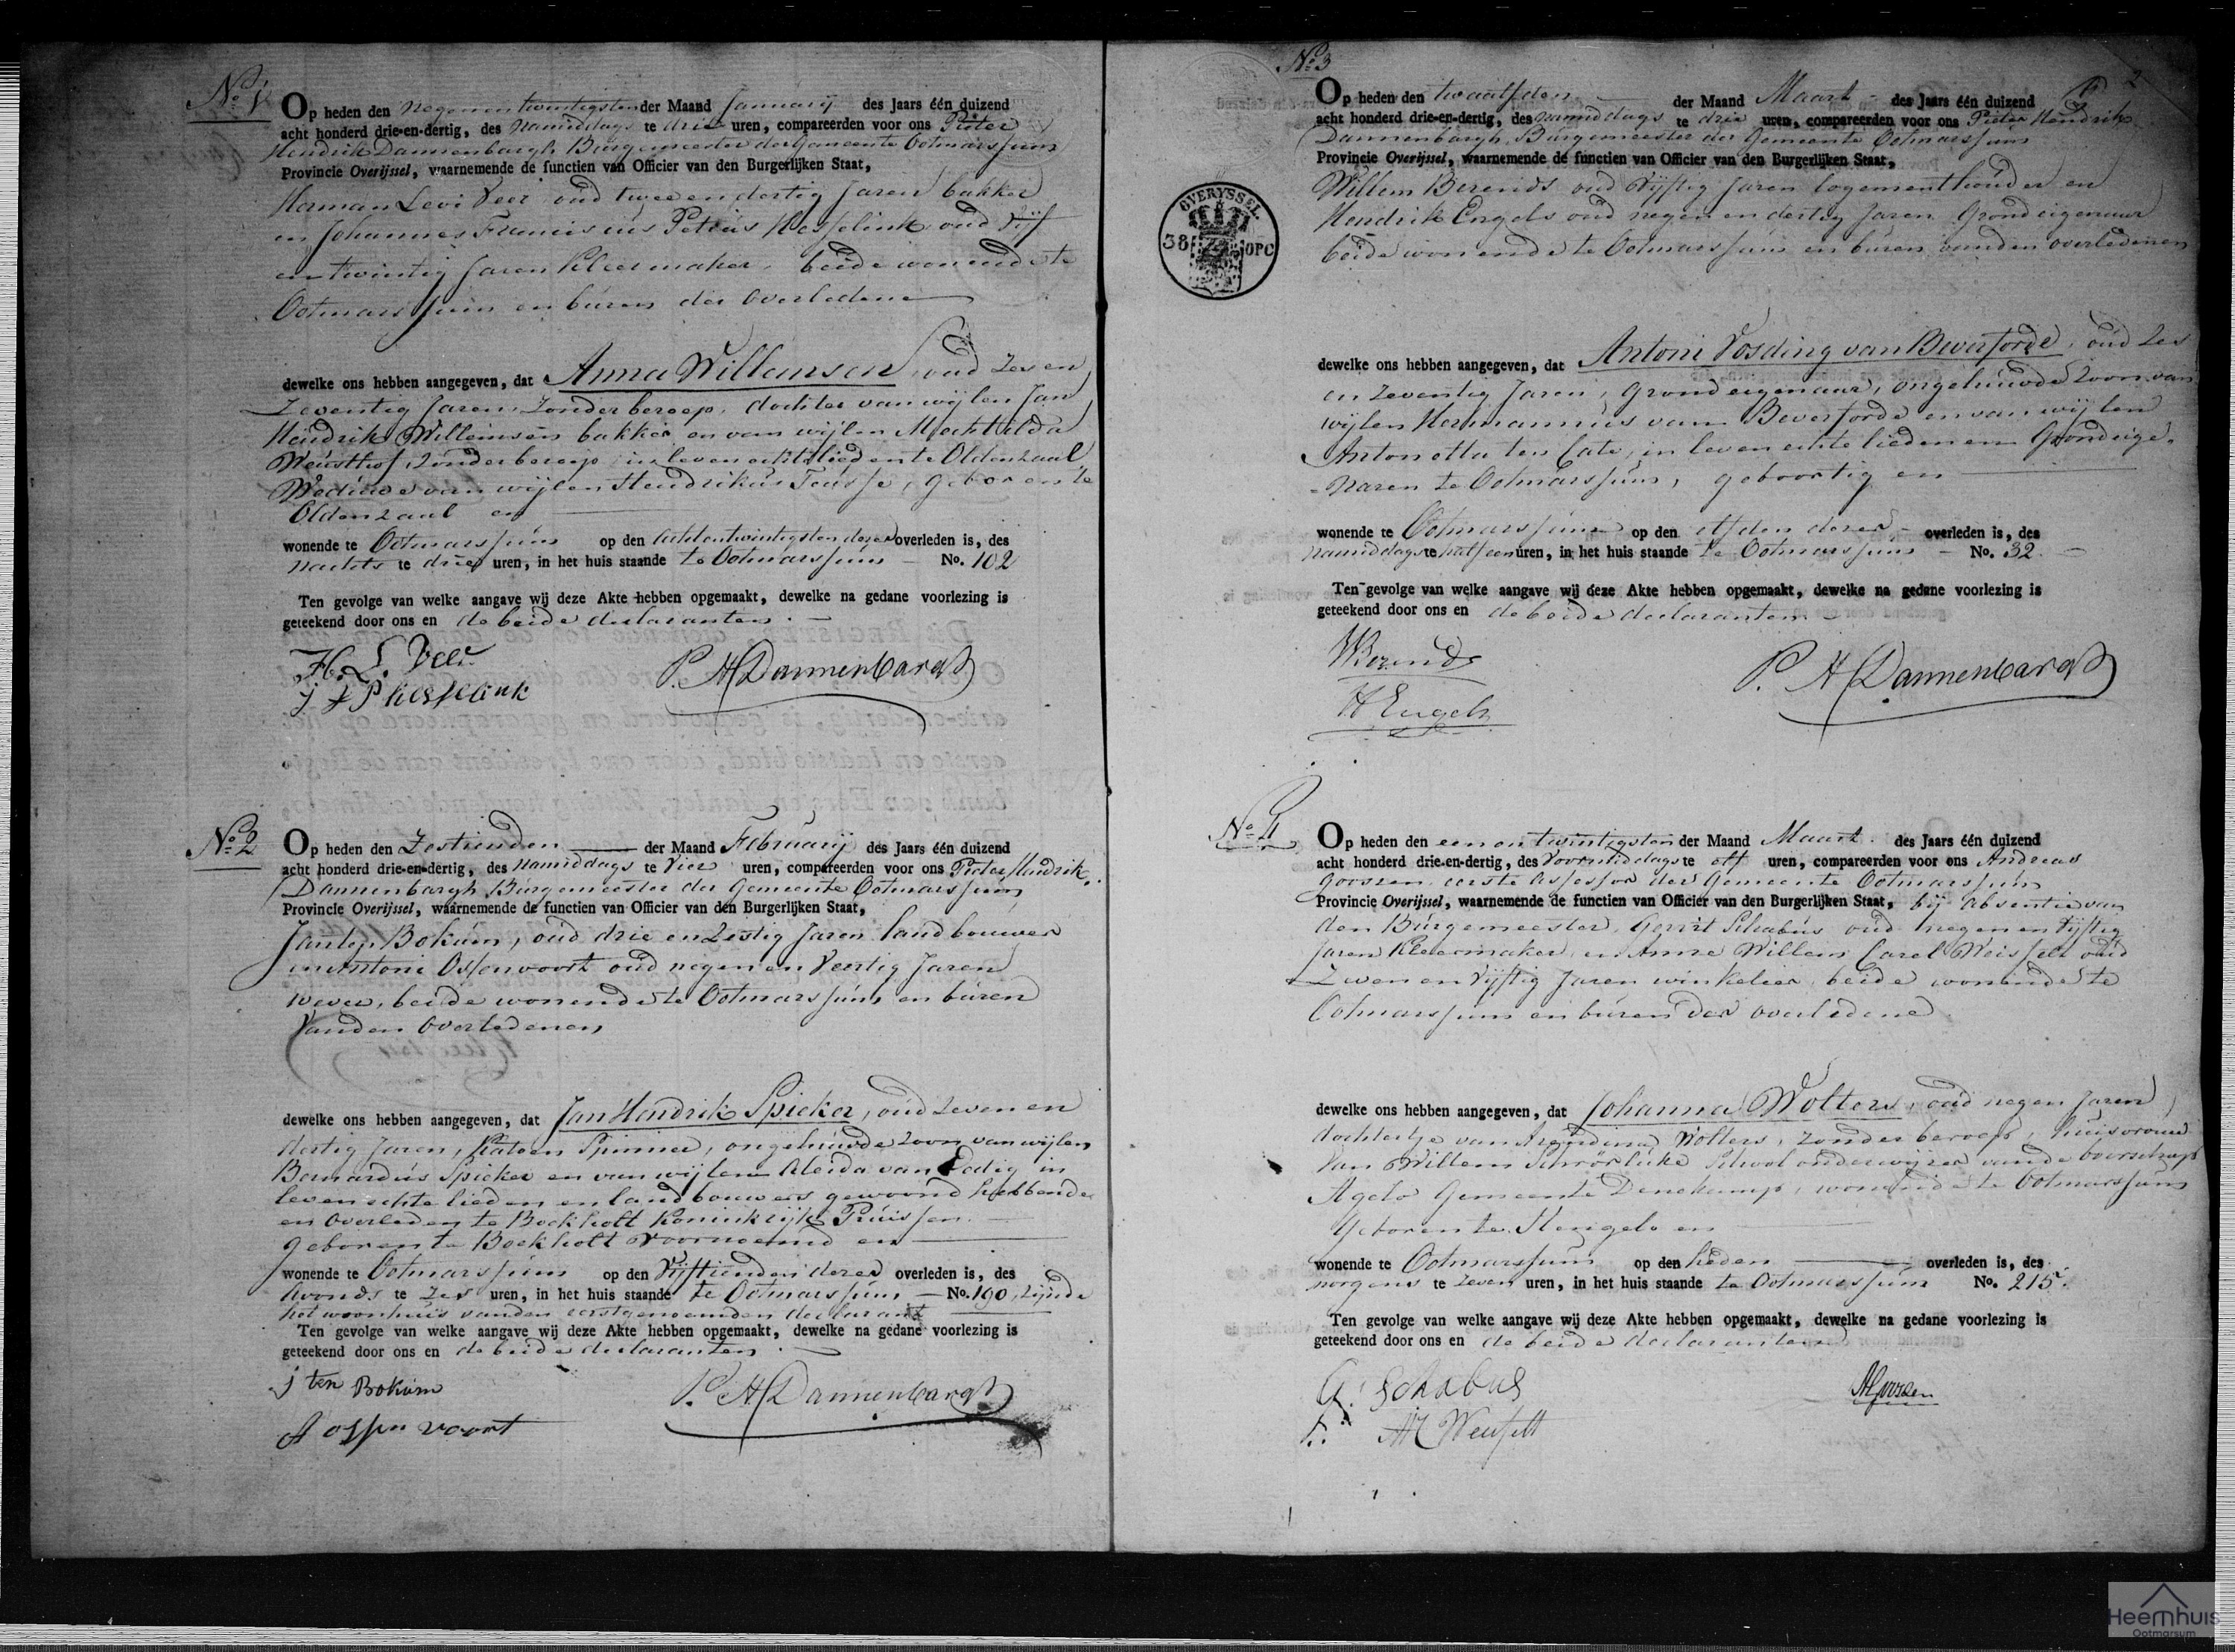 No 1
Op heden den Negenentwintigsten der Maand Januarij des Jaars één duizend
acht honderd drie-en-dertig, des Namiddags te drie uren, compareerden voor ons Pieter
Hendrik Dannenbargh Burgemeester der Gemeente Ootmarssum
Provincie Overijssel, waarnemende de functien van Officier van den Burgerlijken Staat,
Herman Levi Veer oud twee en dertig Jaren bakker
en Johannes Franciscus Petrus Hesselink oud Vijf
en twintig Jaren Kleermaker, beide wonende te
Ootmarssum en buren der Overledene
dewelke ons hebben aangegeven, dat Anna Willemsen, oud Zes en
Zeventig Jaren, Zonder beroep, dochter van wijlen Jan
Hendrik Willemsen bakker en van wijlen Mechtilda
zonder beroep in leven echtelieden te Oldenzaal
Weduwe van wijlen Hendrikus geboren te
Oldenzaal en
wonende te Ootmarssum op den achtentwintigsten dezer overleden is, des
Nachts te drie uren, in het huis staande te Ootmarssum No. 102
Ten gevolge van welke aangave wij deze Akte hebben opgemaakt, dewelke na gedane voorlezing is
geteekend door ons en de beide declaranten.
H. L. Veer
j F P hesselink P. H Dannenbargh
No 2
Op heden den Zestienden der Maand Februarij des Jaars één duizend
acht honderd drie-en-dertig, des Namiddags te Vier uren, compareerden voor ons Pieter Hendrik
Dannenbargh Burgemeester der Gemeente Ootmarssum
Provincie Overijssel, waarnemende de functien van Officier van den Burgerlijken Staat,
Jan ten Bokum, oud drie en Zestig Jaren landbouwer
en Antoni Ossenvoort oud negen en Veertig Jaren
wever, beide wonende te Ootmarssum en buren
van den Overledenen
dewelke ons hebben aangegeven, dat Jan Hendrik Spieker, oud Zeven en
dertig Jaren, Katoen Spinner, ongehuwde Zoon van wijlen
Bernardus Spieker en van wijlen Aleida van in
leven echte lieden en landbouwers gewoond hebbende
en Overleden te Bockholt Koninkrijk Pruissen.
geboren te Bockholt voornoemd en
wonende te Ootmarssum op den Vijftienden dezer overleden is, des
Avonds te Zes uren, in het huis staande te Ootmarssum No. 190, zijnde
het woonhuis van den eerstgenoemden declarant
Ten gevolge van welke aangave wij deze Akte hebben opgemaakt, dewelke na gedane voorlezing is
geteekend door ons en de beide declaranten.
j ten Bokum P. H Dannenbargh
A ossen voort
No 3
2
Op heden den twaalfden der Maand Maart des Jaars één duizend
acht honderd drie-en-dertig, des namiddags te drie uren, compareerden voor ons Pieter Hendrik
Dannenbargh, Burgemeester der Gemeente Ootmarssum
Provincie Overijssel, waarnemende de functien van Officier van den Burgerlijken Staat,
Willem Berends oud Vijftig Jaren logementhouder en
Hendrik Engels oud negen en dertig Jaren Grondeigenaar
beide wonende te Ootmarssum en buren van den overledenen
OVERYSSEL.
38 OPC
dewelke ons hebben aangegeven, dat Antoni Vosding van Beverforde, oud Zes
en Zeventig Jaren, Grondeigenaar, ongehuwde Zoon van
wijlen Hermannus van Beverforde en van wijlen
Antonetta ten Cate, in leven echte lieden en Grondeige-
-naren te Ootmarssum, geboortig en
wonende te Ootmarssum op den elfden dezer overleden is, des
namiddags te half een uren, in het huis staande te Ootmarssum No. 32.
Ten gevolge van welke aangave wij deze Akte hebben opgemaakt, dewelke na gedane voorlezing is
geteekend door ons en de beide declaranten
WBerends P. H Dannenbargh
H Engels
No 4
Op heden den een en twintigsten der Maand Maart. des Jaars één duizend
acht honderd drie-en-dertig, des Voormiddags te elf uren, compareerden voor ons Andreas
Goossen eerste Assessor der Gemeente Ootmarssum
Provincie Overijssel, waarnemende de functien van Officier van den Burgerlijken Staat, bij Absentie van
den Burgemeester, Gerrit Schabus oud negen en Vijftig
Jaren Kleermaker, en Anne Willem Carel oud
Zeven en Vijftig Jaren winkelier, beide wonende te
Ootmarssum en buren der overledene
dewelke ons hebben aangegeven, dat Johanna Wolters, oud negen Jaren
dochtertje van Arendina Wolters, zonder beroep, huisvrouw
van Willem School onderwijzer van de boerschap
Agelo Gemeente Denekamp, wonende te Ootmarssum
Geboren te Hengelo en
wonende te Ootmarssum op den heden overleden is, des
morgens te Zeven uren, in het huis staande te Ootmarssum No. 215.
Ten gevolge van welke aangave wij deze Akte hebben opgemaakt, dewelke na gedane voorlezing is
geteekend door ons en de beide declaranten
G. Schabus AGoossen
Heemhuis
Ootmarsum